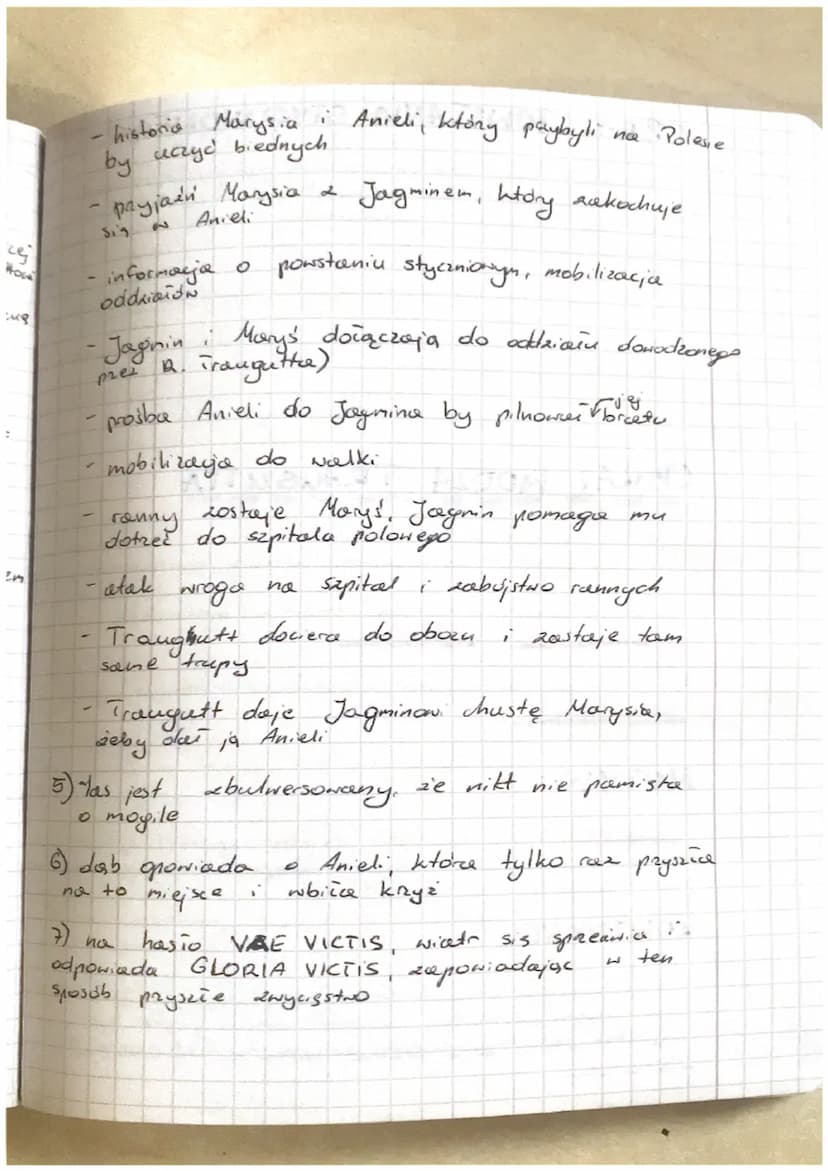 - historia Marysia i Anieli, który przybyli na Polesie
by uczyć biednych
- przyjaźń Marysia z Jagminem, który zakochuje
się w Anieli
- informacja o powstaniu styczniowym, mobilizacja
oddziałów
- Jagmin i Maryś dołączają do oddziału dowodzonego
przez R. Traugutta)
- prośba Anieli do Jagmina by pilnował jej brata
- mobilizacja do walki
- ranny zostaje Maryś, Jagmin pomaga mu
dotrzeć do szpitala polowego
- atak wroga na szpital i zabójstwo rannych
- Traugutt dociera do obozu i zastaje tam
same trupy
- Traugutt daje Jagminowi chustę Marysia,
żeby dał ją Anieli
5) las jest zbulwersowany, że nikt nie pamięta
o mogile
6) dąb opowiada o Anieli, która tylko raz przyszła
na to miejsce i wbiła krzyż
7) na hasło VAE VICTIS, wiatr się sprzeciwia i
odpowiada GLORIA VICTIS, zapowiadając w ten
sposób przyszłe zwycięstwo
cej
em